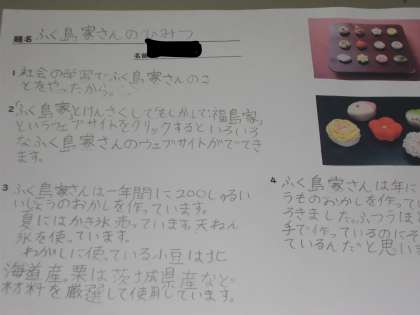 題名 ふく島家さんのひみつ
名前
1 社会の学習でふく島家さんのこ
とをやったから。
2 ふく島家とけんさくしてをしかして福島家
というウェブサイトをクリックするといろいろ
なふく島家さんのウェブサイトがでてき
ます。
3 ふく島家さんは一年間に200しゅるい
いじょうのおかしを作っています。
夏にはかき氷売っています。天ねん
氷を使っています。
わがしに使っている小豆は北
海道産。栗は茨城県産など。
材料を厳選して使用しています。
4 ふく島家さんは年に
うものおかしを作ってい
ろきました。ふつうはき
手で作っているのにそ
ているんだと思い